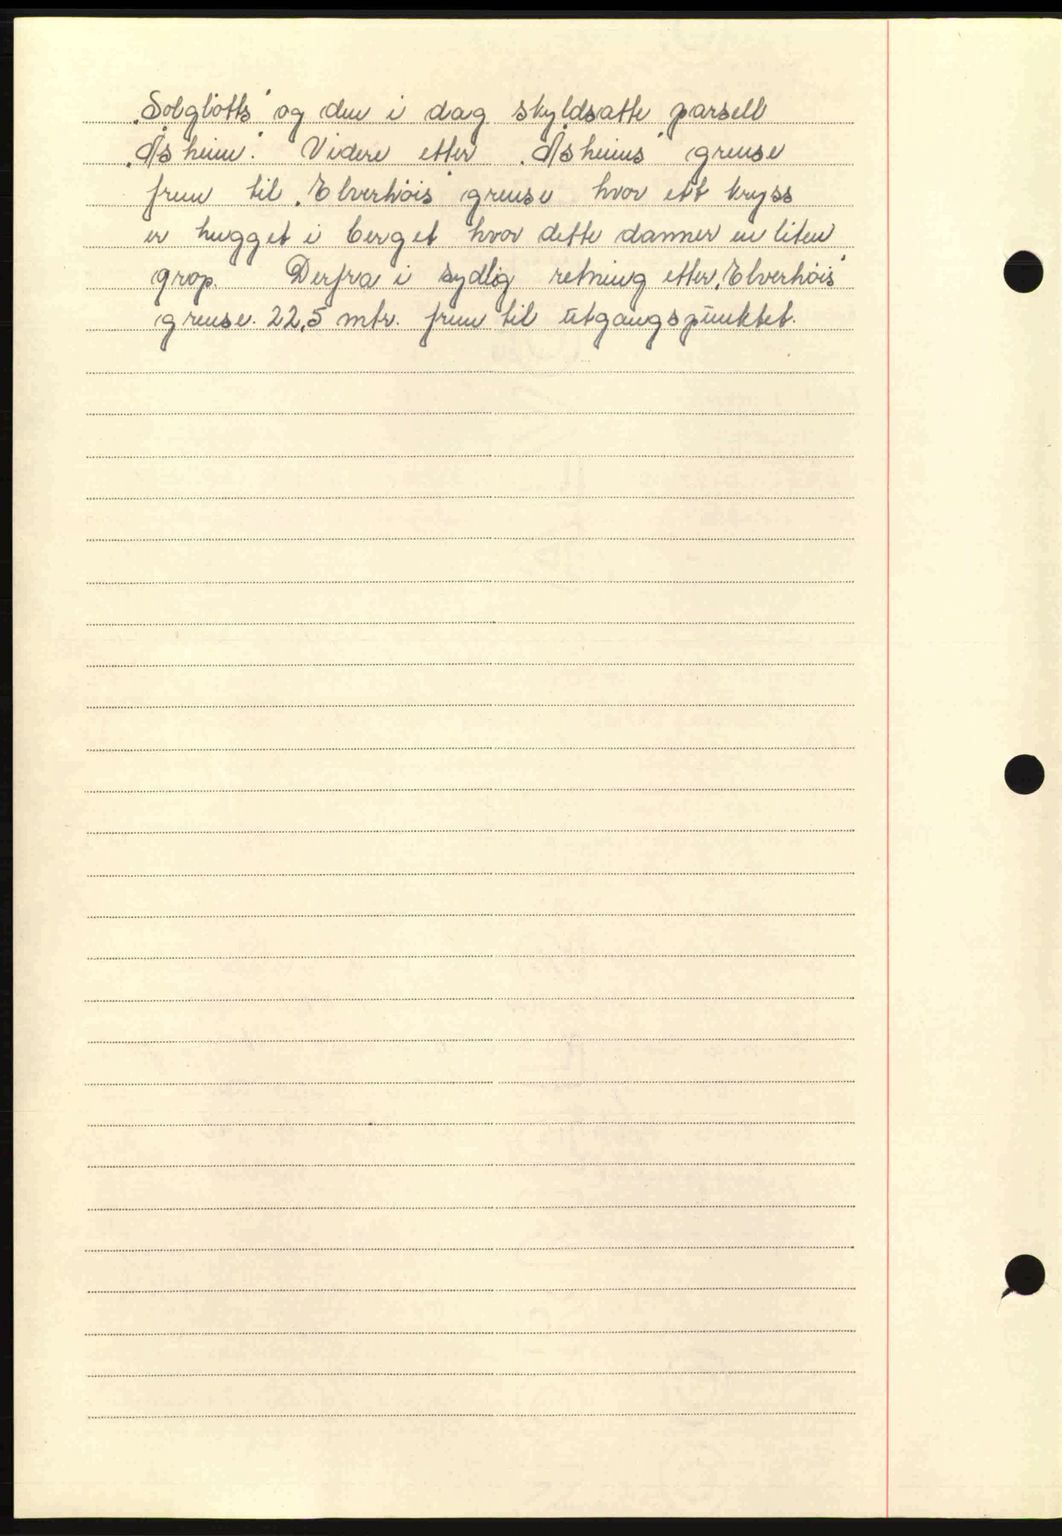 „Solgløtts" og den i dag skyldsatte parsell
„Åsheim". Videre etter „Åsheims" grense
frem til „Elverhöis" grense hvor ett kryss
er hugget i berget hvor dette danner en liten
grop. Derfra i sydlig retning etter „Elverhöis"
grense. 22,5 mtr. frem til utgangspunktet.